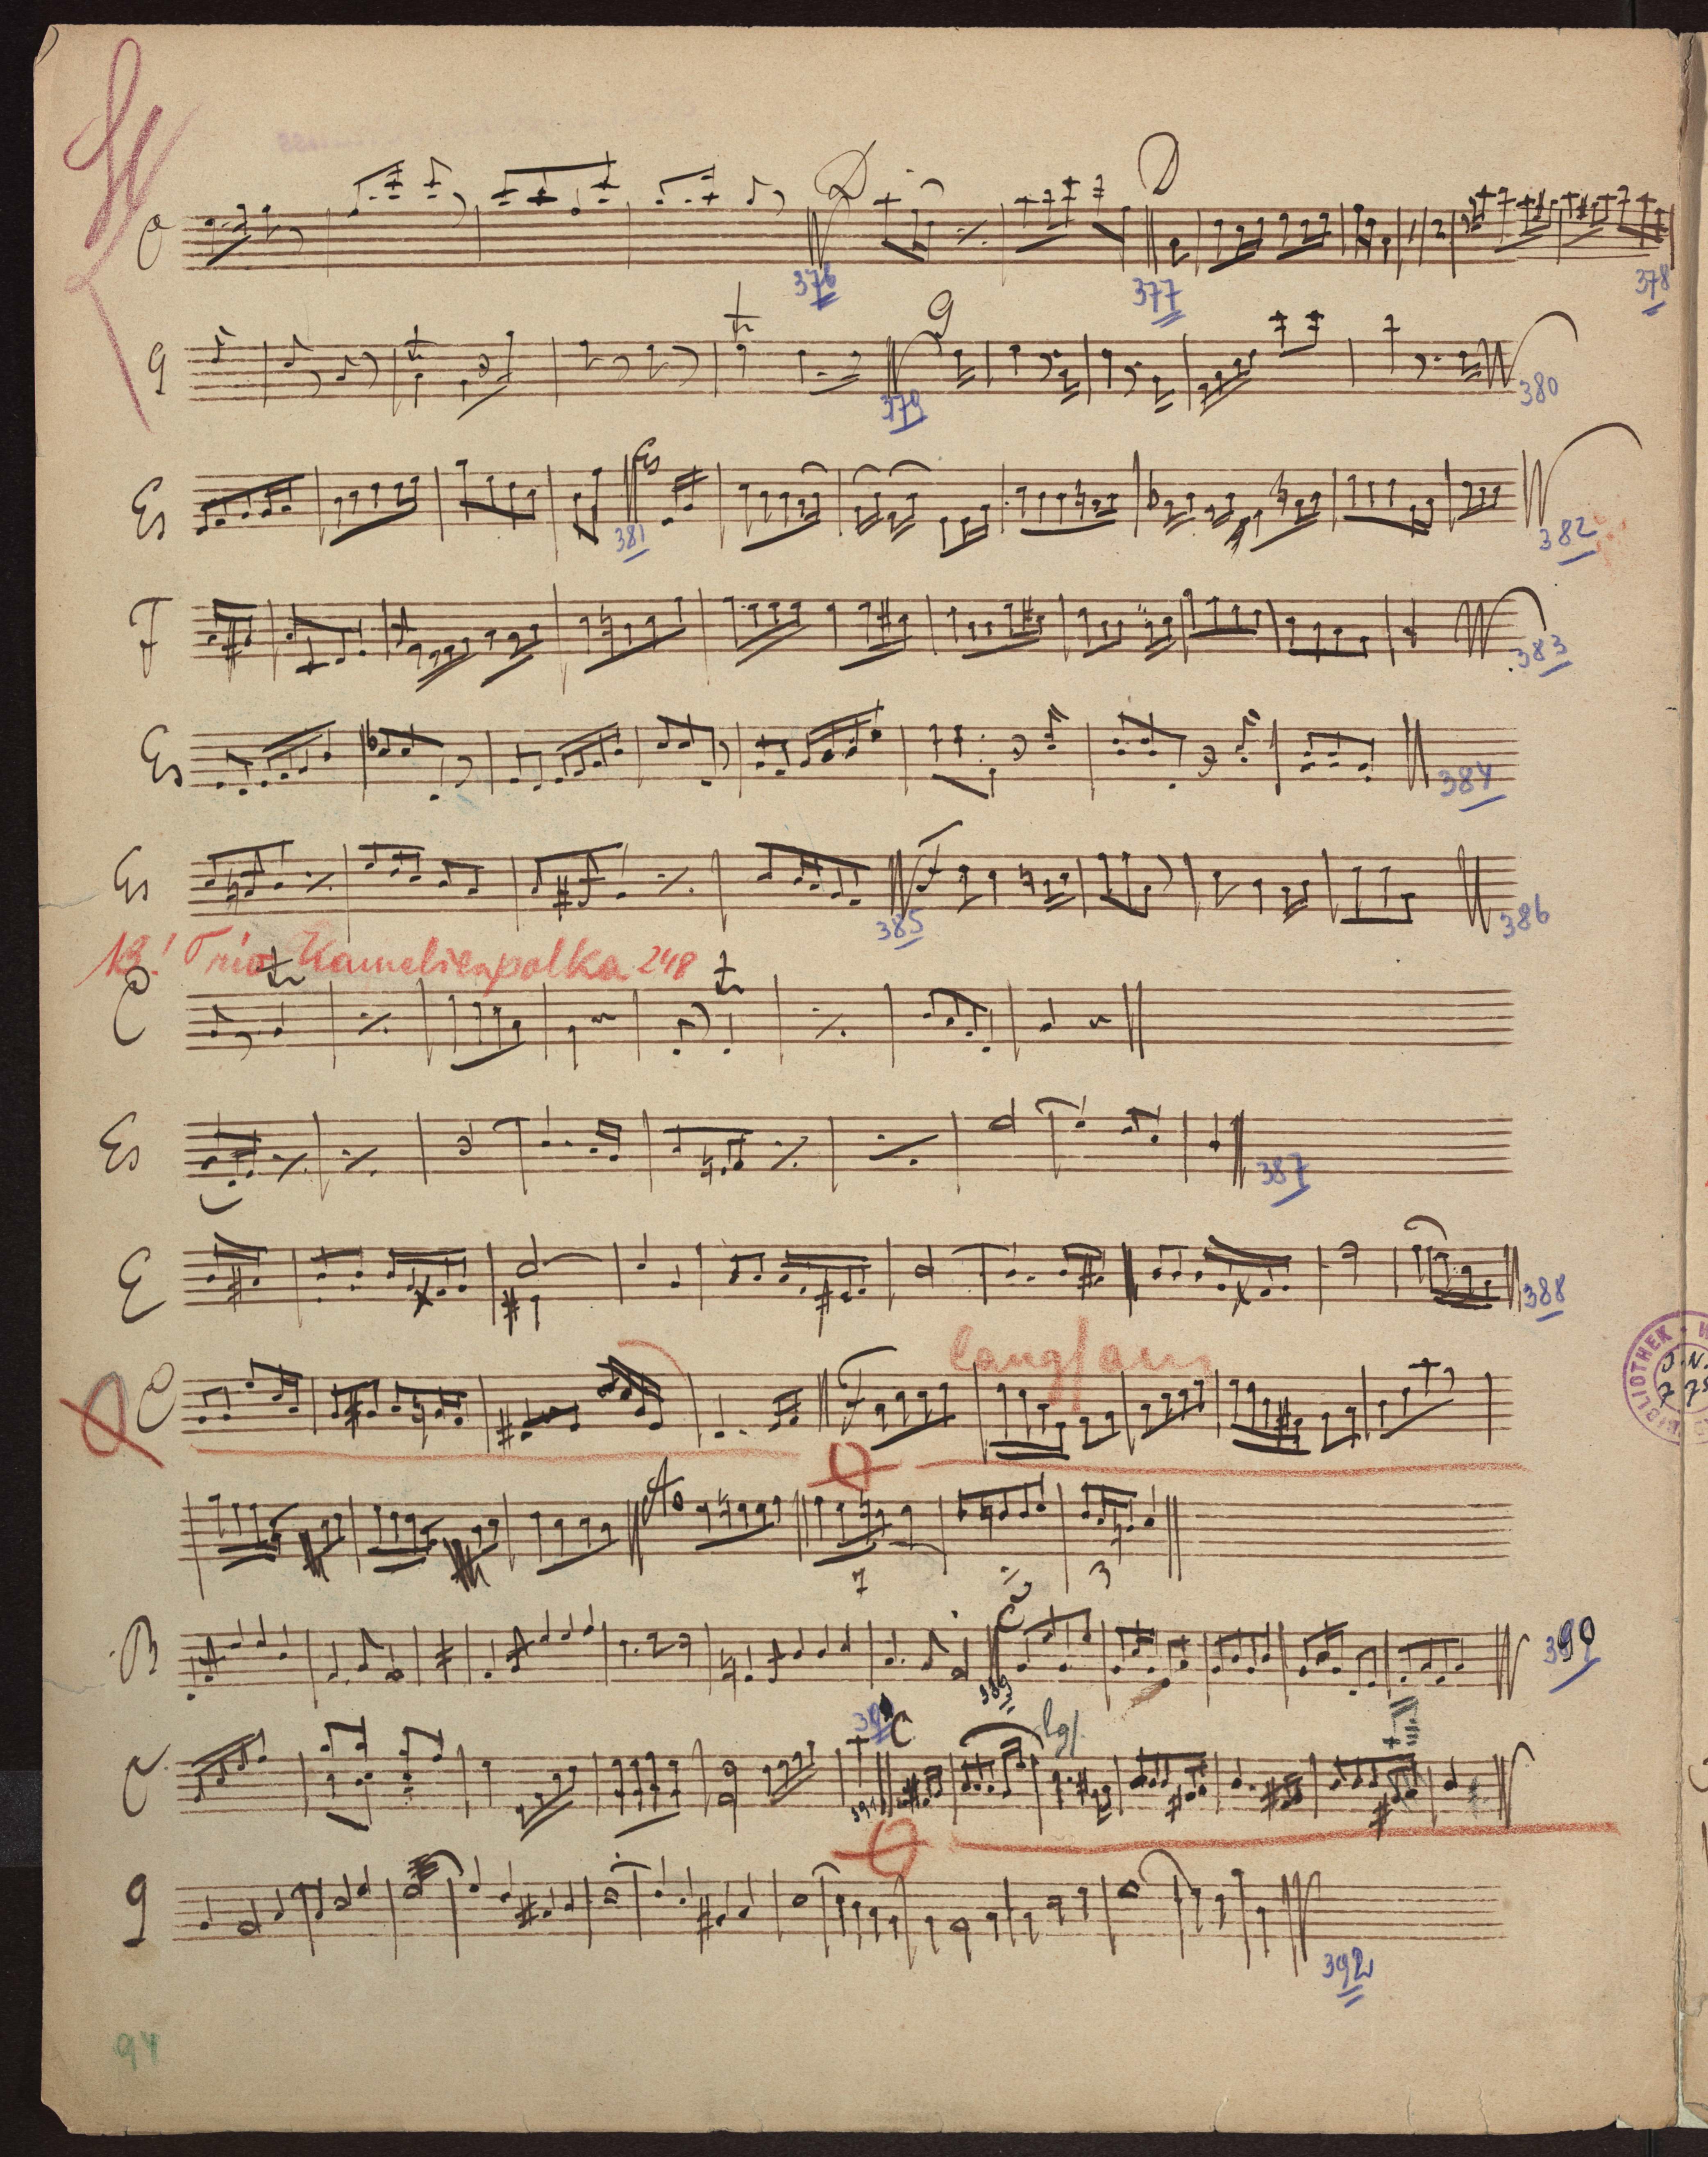 C D D
376 377 378
G tr tr G
379 380
Es Es
381 382
F
383
Es
384
Es F
385 386
Trio Kamelienpolka 248
C tr tr
Es
387
E
388
langsam
C F
As
7 3
B C
389 390
C C lgs.
391
G
392
94
BIBLIOTHEK
J.N.